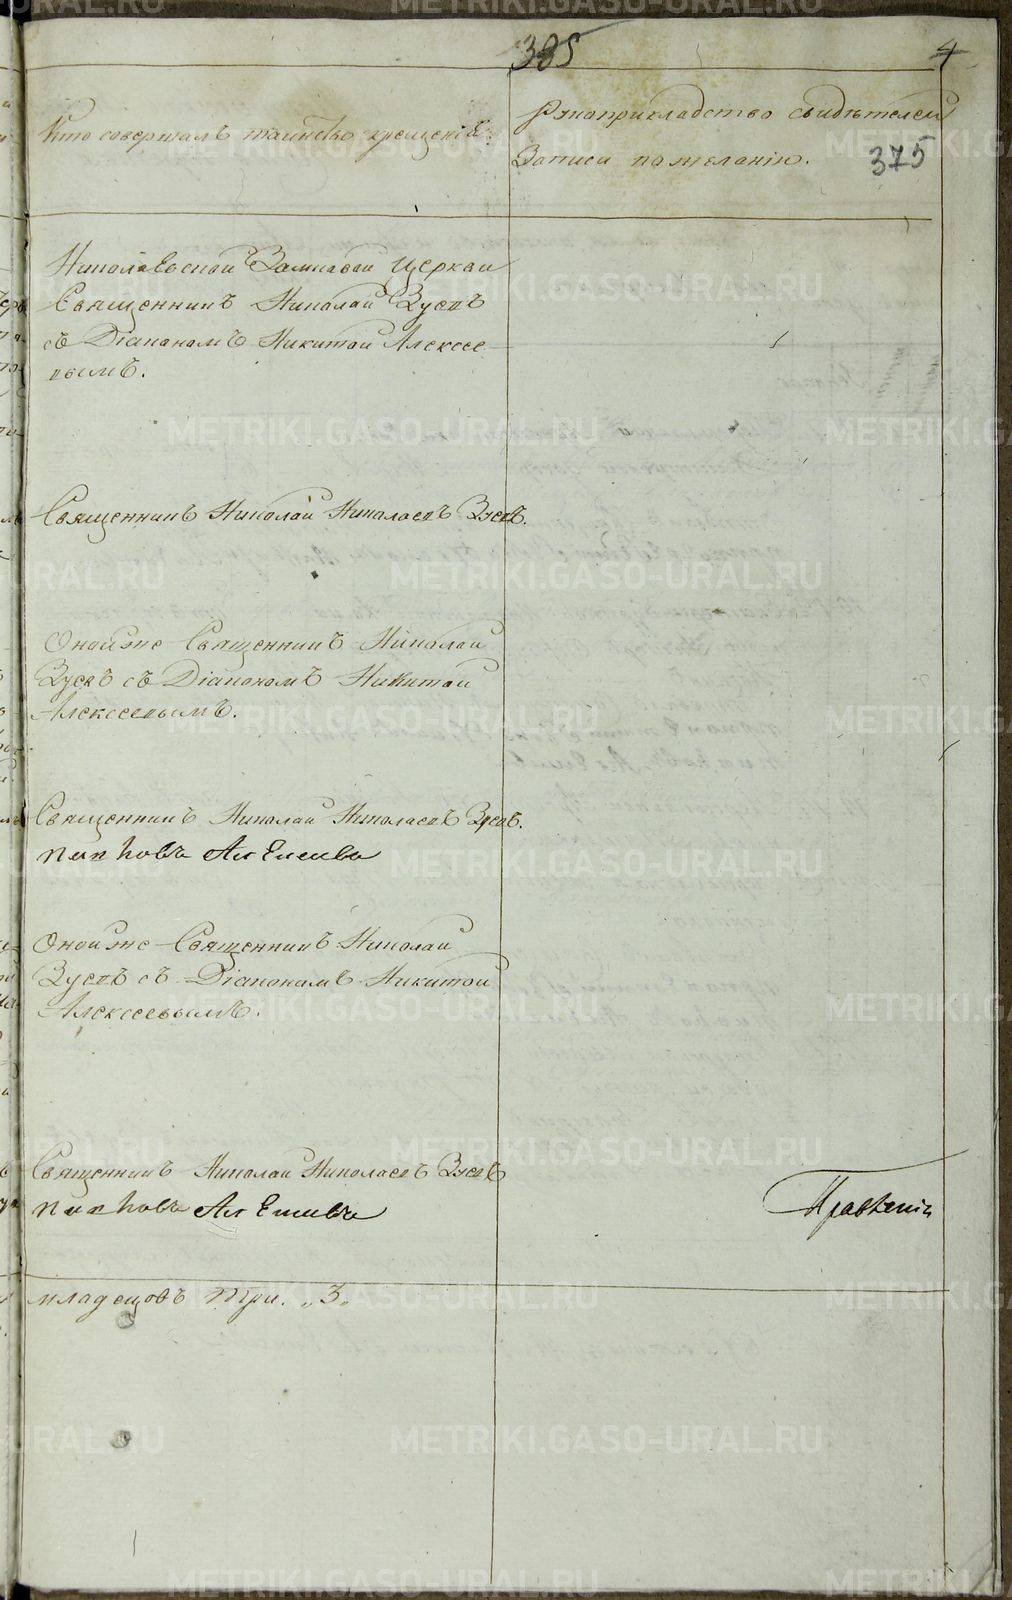 385
4
Кто совершалъ таинство крещенія.
Рукоприкладство свидѣтелей
записи по желанію.
375
Николаевской Заимкавай Церкви
Священникъ Николай Зуевъ
съ Діакономъ Никитой Алексѣе-
вымъ.
Священникъ Николай Николаевъ Зуевъ.
Оной же Священникъ Николай
Зуевъ съ Діакономъ Никитой
Алексеевымъ.
Священникъ Николай Николаевъ Зуевъ.
Оной же Священникъ Николай
Зуевъ съ Діакономъ Никитой
Алексеевымъ.
Священникъ Николай Николаевъ Зуевъ
младенцовъ три. „3„
METRIKI.GASO-URAL.RU